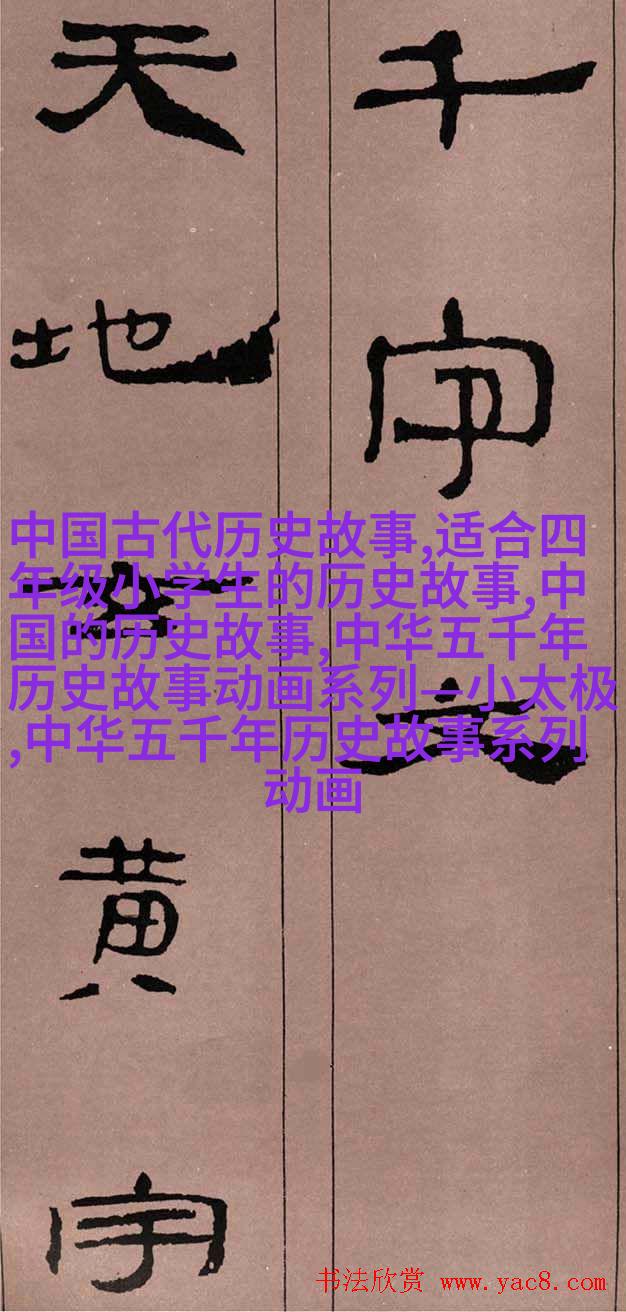 千字文
天地黄宇
中国古代历史故事,适合四
年级小学生的历史故事,中
国的历史故事,中华五千年
历史故事动画系列—小太极
,中华五千年历史故事系列
动画
书法欣赏 www.yac8.com